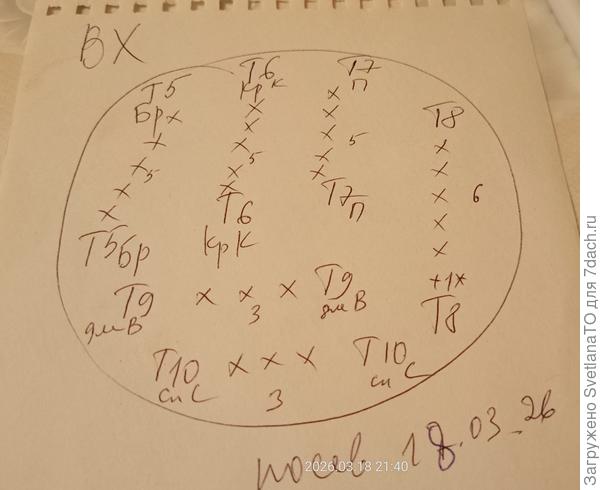 ВХ
Т5 Т6 Т7
Бр х крк п
х х х Т8
х х х х
х 5 х 5 х 5 х
х х х х 6
х х х х
Т5 бр Т6 Т7 х
крк п +1х
Т9 х х х Т9 Т8
ям В 3 ям В
Т10 х х х Т10
сп С 3 сп С
посев 18.03.26
2026.03.18 21:40
Загружено SvetlanaTO для 7dach.ru